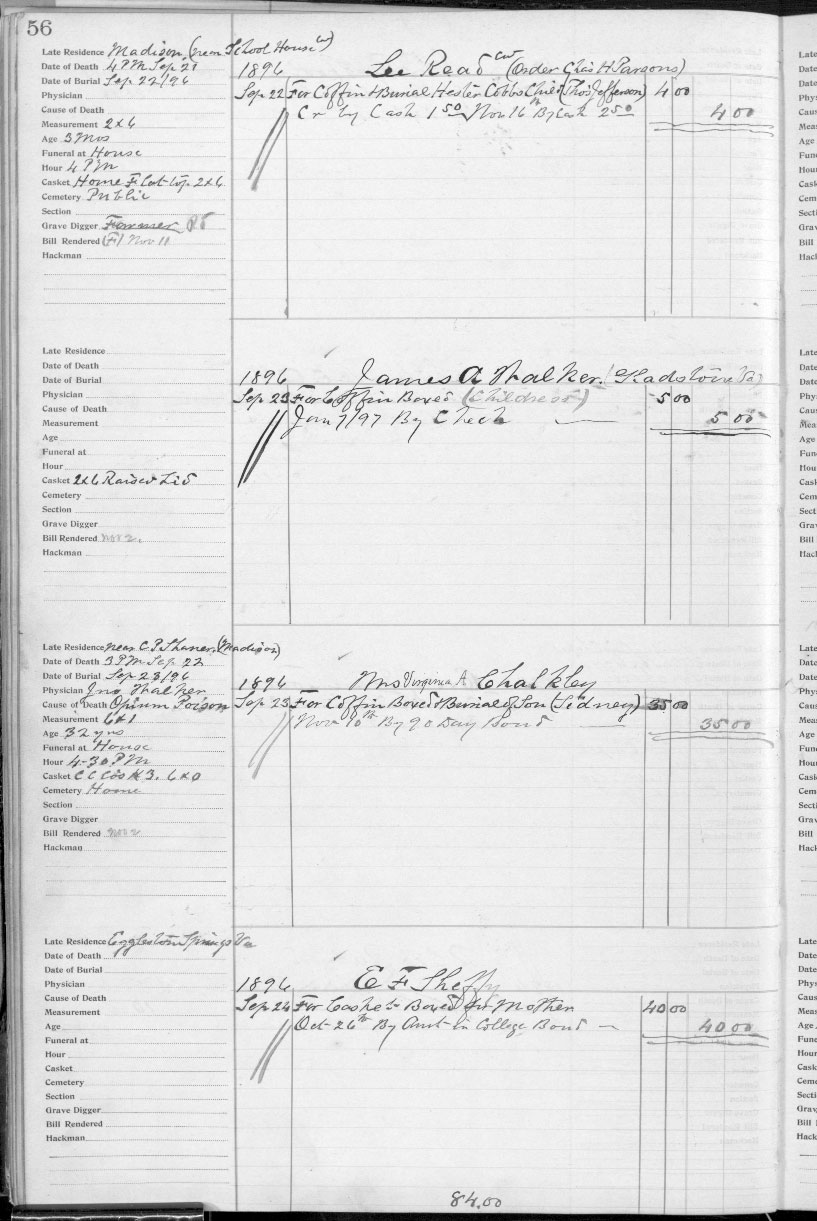 56
Late Residence Madison (near School House)
Date of Death 4 PM Sep 21
Date of Burial Sep 22/96
Physician
Cause of Death
Measurement 2x6
Age 3 Mos
Funeral at House
Hour 4 PM
Casket Home Flat top 2x6
Cemetery Public
Section
Grave Digger Farmer
Bill Rendered (F) Nov 11
Hackman
1896 Lee Read (Order Chas H Parsons)
Sep 22 For Coffin & Burial Hester Cobbs Child (Thos Jefferson) 4 00
Cr by Cash 1 50 Nov 16th By Cash 2 50 4 00
Late Residence
Date of Death
Date of Burial
Physician
Cause of Death
Measurement
Age
Funeral at
Hour
Casket 2x6 Raised Lid
Cemetery
Section
Grave Digger
Bill Rendered Nov 2.
Hackman
1896 James A Walker. (Gladstone Va)
Sep 23 For Coffin Boxed (Childress) 5 00
Jan 7/97 By Check 5 00
Late Residence near C P Shaner (Madison)
Date of Death 3 PM Sep 22
Date of Burial Sep 23/96
Physician Jno Walker
Cause of Death Opium Poison
Measurement 6x1
Age 32 yrs
Funeral at House
Hour 4-30 PM
Casket C C Cos 3. 6x0
Cemetery Home
Section
Grave Digger
Bill Rendered Nov 2
Hackman
1896 Mrs Virginia A Chalkley
Sep 23 For Coffin Boxed & Burial of Son (Sidney) 35 00
Nov 10th By 90 Day Bond 35 00
Late Residence Eggleston Springs Va
Date of Death
Date of Burial
Physician
Cause of Death
Measurement
Age
Funeral at
Hour
Casket
Cemetery
Section
Grave Digger
Bill Rendered
Hackman
1896 E F Sheffy
Sep 24 For Casket Boxed for Mother 40 00
Oct 26th By Amt in College Bond 40 00
84.00